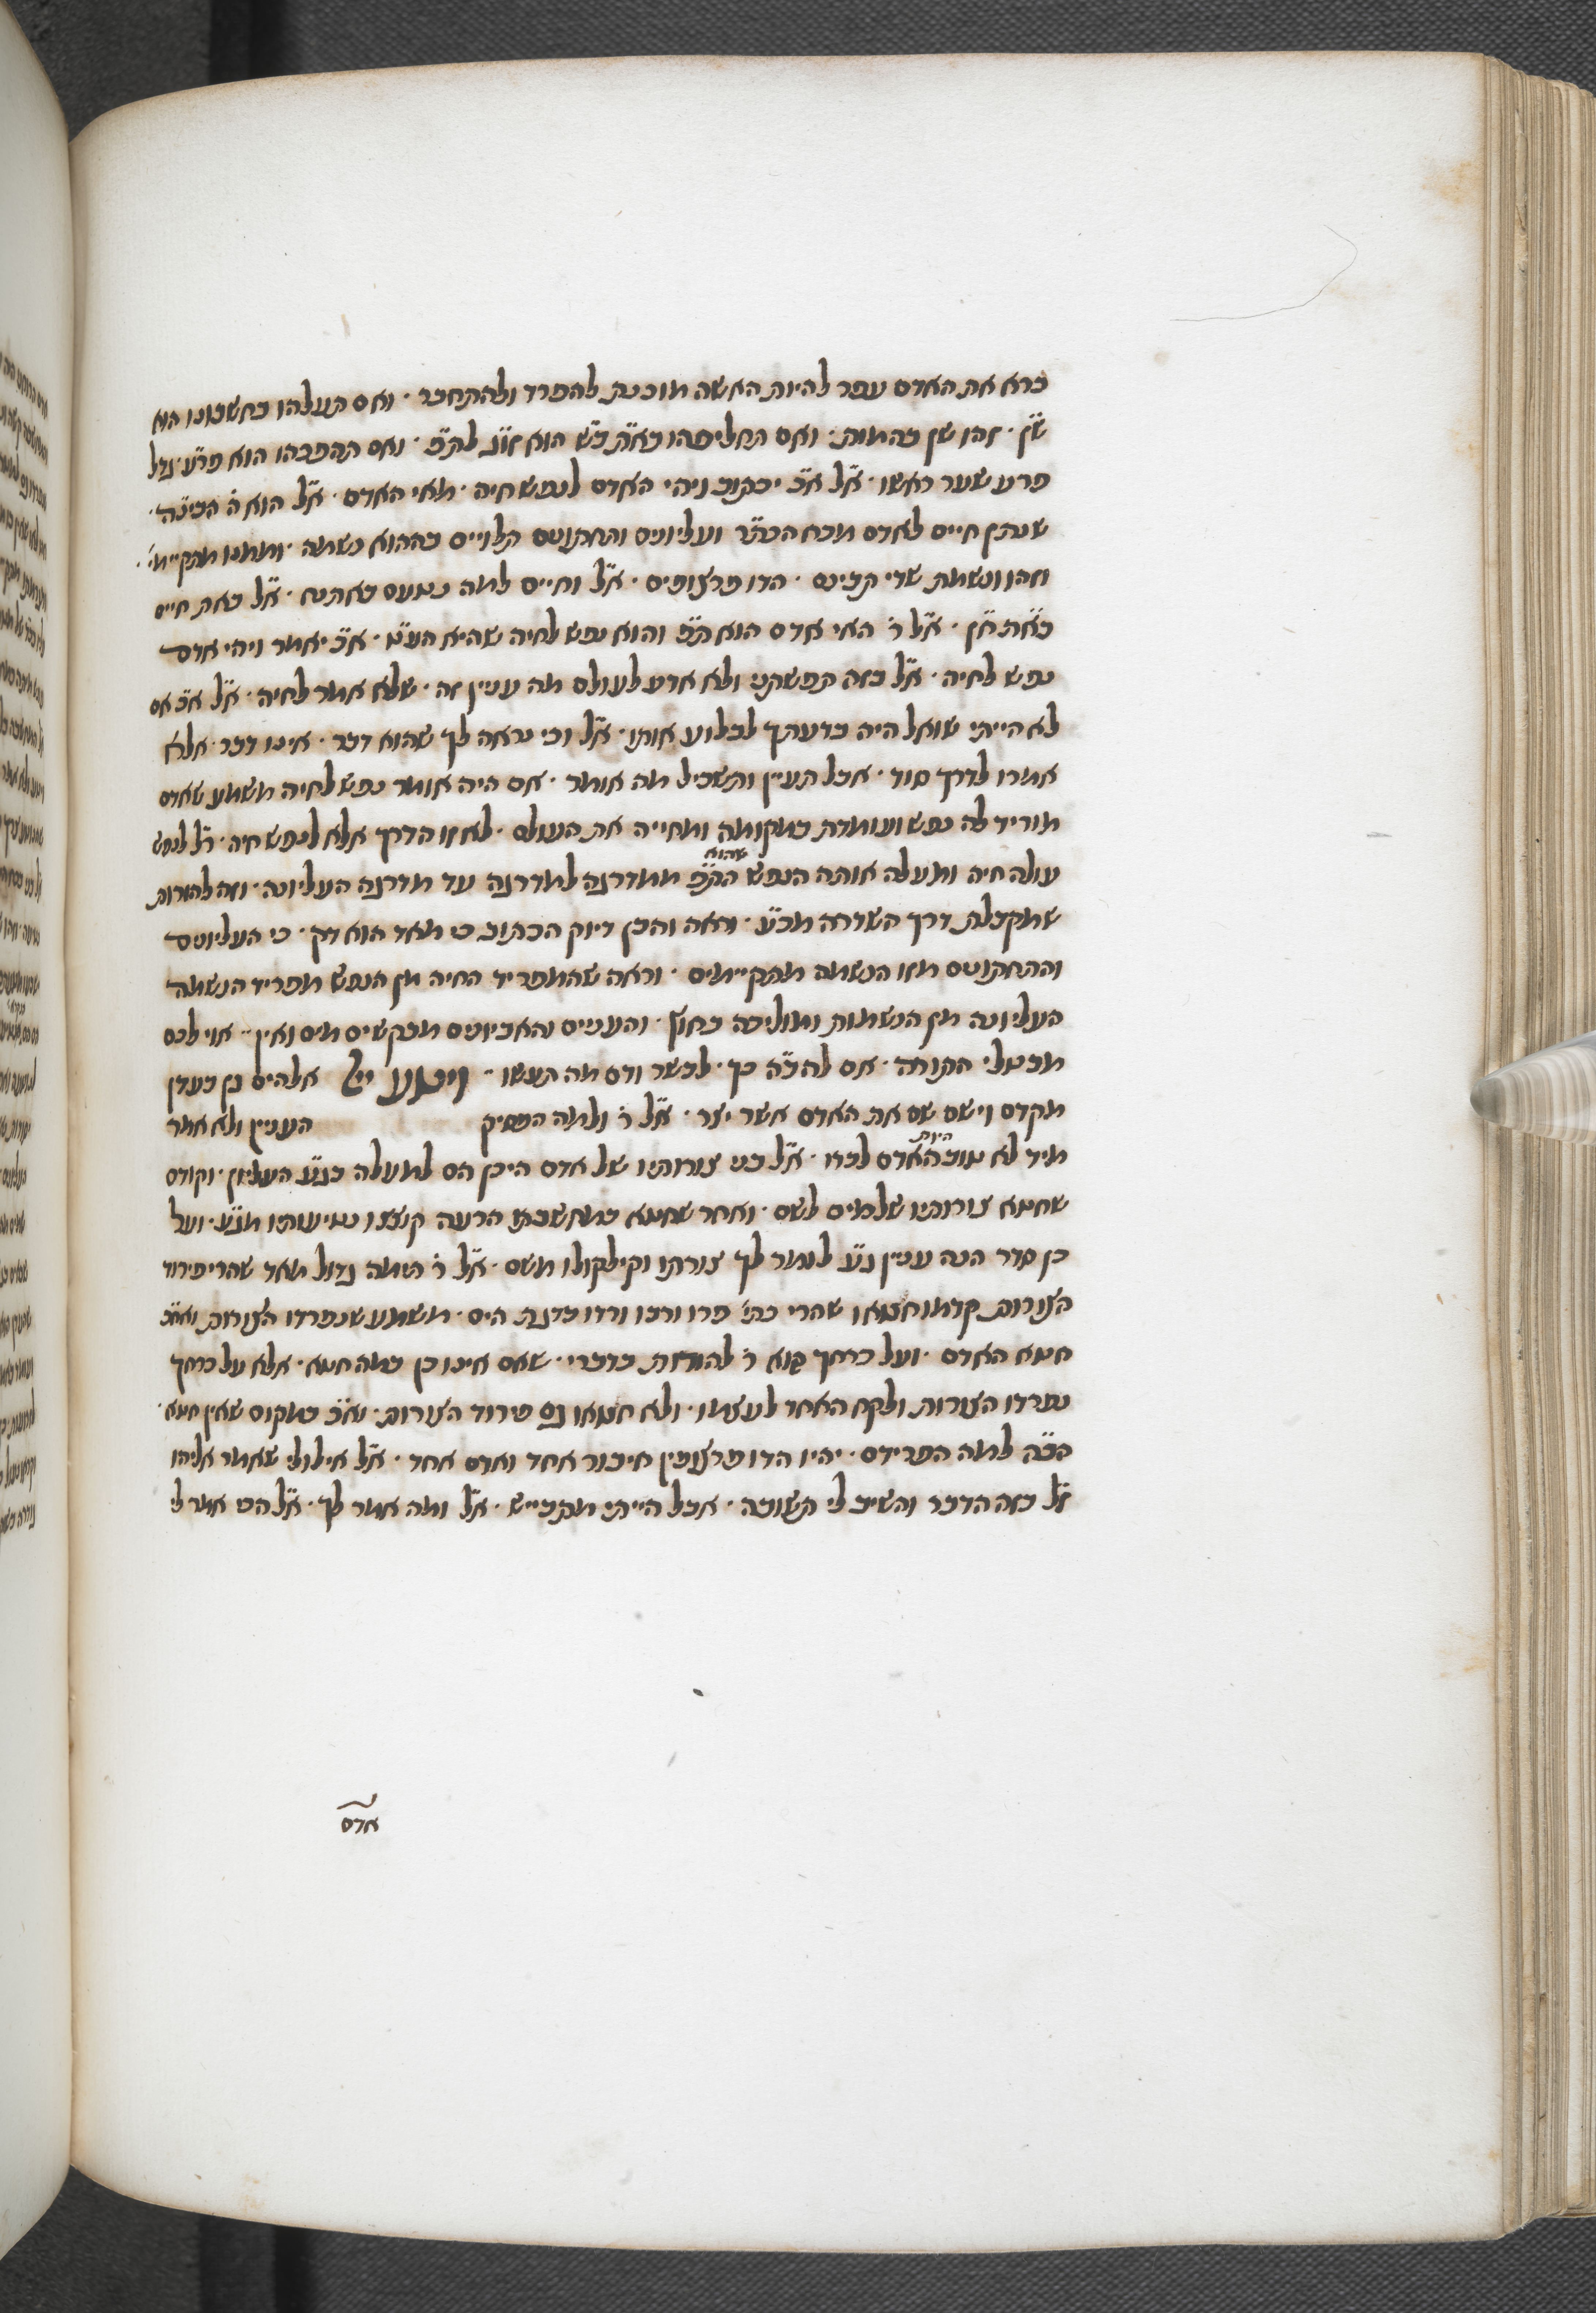 ברא את האדם עפר להיות האשה מוכנת להפרד ולהתחבר · ואם תעלהו בחשבונו הוא
ש״ן · זהו שן בהמות · ואם תחליפהו בא״ת ב״ש הוא זו״ג לת״פ · ואם תהפכהו הוא פר״ע · גדל
פרע שער ראשו · א״ל א״כ יכתוב ויהי האדם לנפש חיה · מאי האדם · א״ל הוא ה׳ הבינ״ה ·
שנתן חיים לאדם מכח הכת״ר ועליונים ותחתונים תלויים בההוא נשמה · וממנו מתקיימי׳ ·
וזהו ונשמת שדי תבינם · הדו פרצופים · א״ל וחיים למה נטעם באתנח · א״ל באת חיים
בא״ת ח״ן · א״ל ר׳ האי אדם הוא ת״פ והוא נפש לחיה שהיא הע״ט · א״כ יאמר ויהי אדם
נפש לחיה · א״ל בזה תפשתני ולא אדע לעולם מה עניין זה · שלא אמר לחיה · א״ל א״כ אם
לא הייתי שואל היה בדעתך לבלוע אותו · א״ל וכי נראה לך שהוא דבר · אינו דבר · אלא
אמרו לדרך סוד · אבל תעיין ותשכיל מה אומר · אם היה אומר נפש לחיה משמע שאדם
מוריד לה נפש ועומדת במקומה ומחייה את העולם · לא זו הדרך אלא לנפש חיה · ר״ל לנפש
עולה חיה ומעלה אותה הנפש שהוא הת״פ ממדרגה למדרגה עד מדרגה העליונה · וזה להורות
שמקבלת דרך השדרה מכ״ע · וראה והבן דיוק הכתוב כי מאד הוא דק · כי העליונים
והתחתונים מזו הנשמה מתקיימים · וראה שהמפריד החיה מן הנפש מפריד הנשמה
העליונה מן הנשמות ומוליכה בחוץ · והעניים והאביונים מבקשים מים ואין · אוי לכם
מבטלי התורה · אם להב״ה כך · לבשר ודם מה תעשו · ויטע ייל אלהים גן בעדן
מקדם וישם שם את האדם אשר יצר · א״ל ר׳ ולמה הפסיק העניין ולא אמר
מיד לא טוב היות האדם לבדו · א״ל בני צורותיו של אדם היכן הם למעלה בג״ע העליון · וקודם
שחטא צורותיו שלמים לשם · ואחר שחטא במחשבתו הרעה קוצצו נטיעותיו מג״ע · ועל
כן סדר הנה עניין ג״ע לומר לך צורתו וקילקולו משם · א״ל ר׳ תימה גדול מאד שהרי פירוד
הצורות קדמו חטאו שהרי כתי׳ פרו ורבו ורדו בדגת הים · משמע שנפרדו הצורות ואח״כ
חטא האדם · ועל כרחך בוא ר׳ להודות כדברי · שאם אינו כן במה חטא · אלא על כרחך
נפרדו הצורות ולקח האחד לעצמו · ולא חטאו גם פירוד הצורות · וא״כ במקום שאין חטא ·
הב״ה למה הפרידם · יהיו הדו פרצופין חיבור אחד ואדם אחד · א״ל אילולי שאמר אליהו
ז״ל בזה הדבר והשיב לי תשובה · אבל הייתי מתבייש · א״ל ומה אמר לך · א״ל הכי אמר לי
אדם